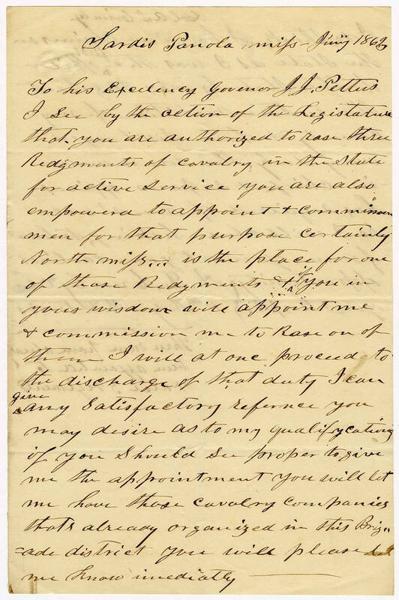 Sardis Panola miss - Jany 1863
To his Excelency Govenor J.J. Pettus
I See by the action of the Legistature
that you are authorized to rase three
Redgments of cavalry in the State
for active Service you are also
empowerd to appoint & commission
men for that purpose certainly
North miss... is the place for one
of those Redgments & if you in
your wisdom will appoint me
& commission me to Rase on of
them I will at one proceed to
the discharge of that duty I can
give any Satisfactory refernce you
may desire as to my qualifycations
if you Should See proper to give
me the appointment you will let
me have those cavalry companies
thats already organized in this Brig-
ade district you will please let
me know imediatly